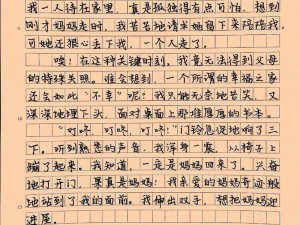 我一人待在家里,真是孤独得有点可怕。想到
刚才妈妈走时,我苦苦地请求她留下来陪陪我,
可她还狠心丢下我,一个人走了。
唉!在这种关键时刻,我竟无法得到父母
的特殊关照。谁会想到,一个所谓的幸福之家
还会如此“不幸”呢?我只能无奈地苦笑,又
深深地埋下头,面对桌面上那堆厚厚的书本。
“叮咚,叮咚,叮咚!”门铃急促地响了三
下。听到熟悉的声音,我浑身一震,从椅子上
蹦了起来。我知道,一定是妈妈回来了。兴奋
地打开门,果真是妈妈!我亲爱的妈妈奇迹般
地站到了我的面前。我伸出双手,想把妈妈迎
进屋。